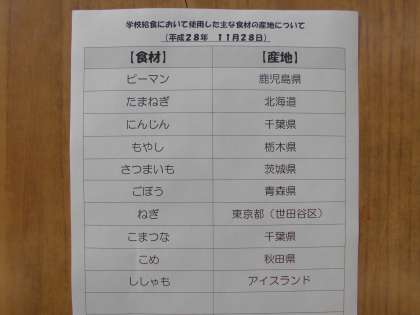 学校給食において使用した主な食材の産地について
（平成２８年　１１月２８日）
【食材】 【産地】
ピーマン 鹿児島県
たまねぎ 北海道
にんじん 千葉県
もやし 栃木県
さつまいも 茨城県
ごぼう 青森県
ねぎ 東京都（世田谷区）
こまつな 千葉県
こめ 秋田県
ししゃも アイスランド